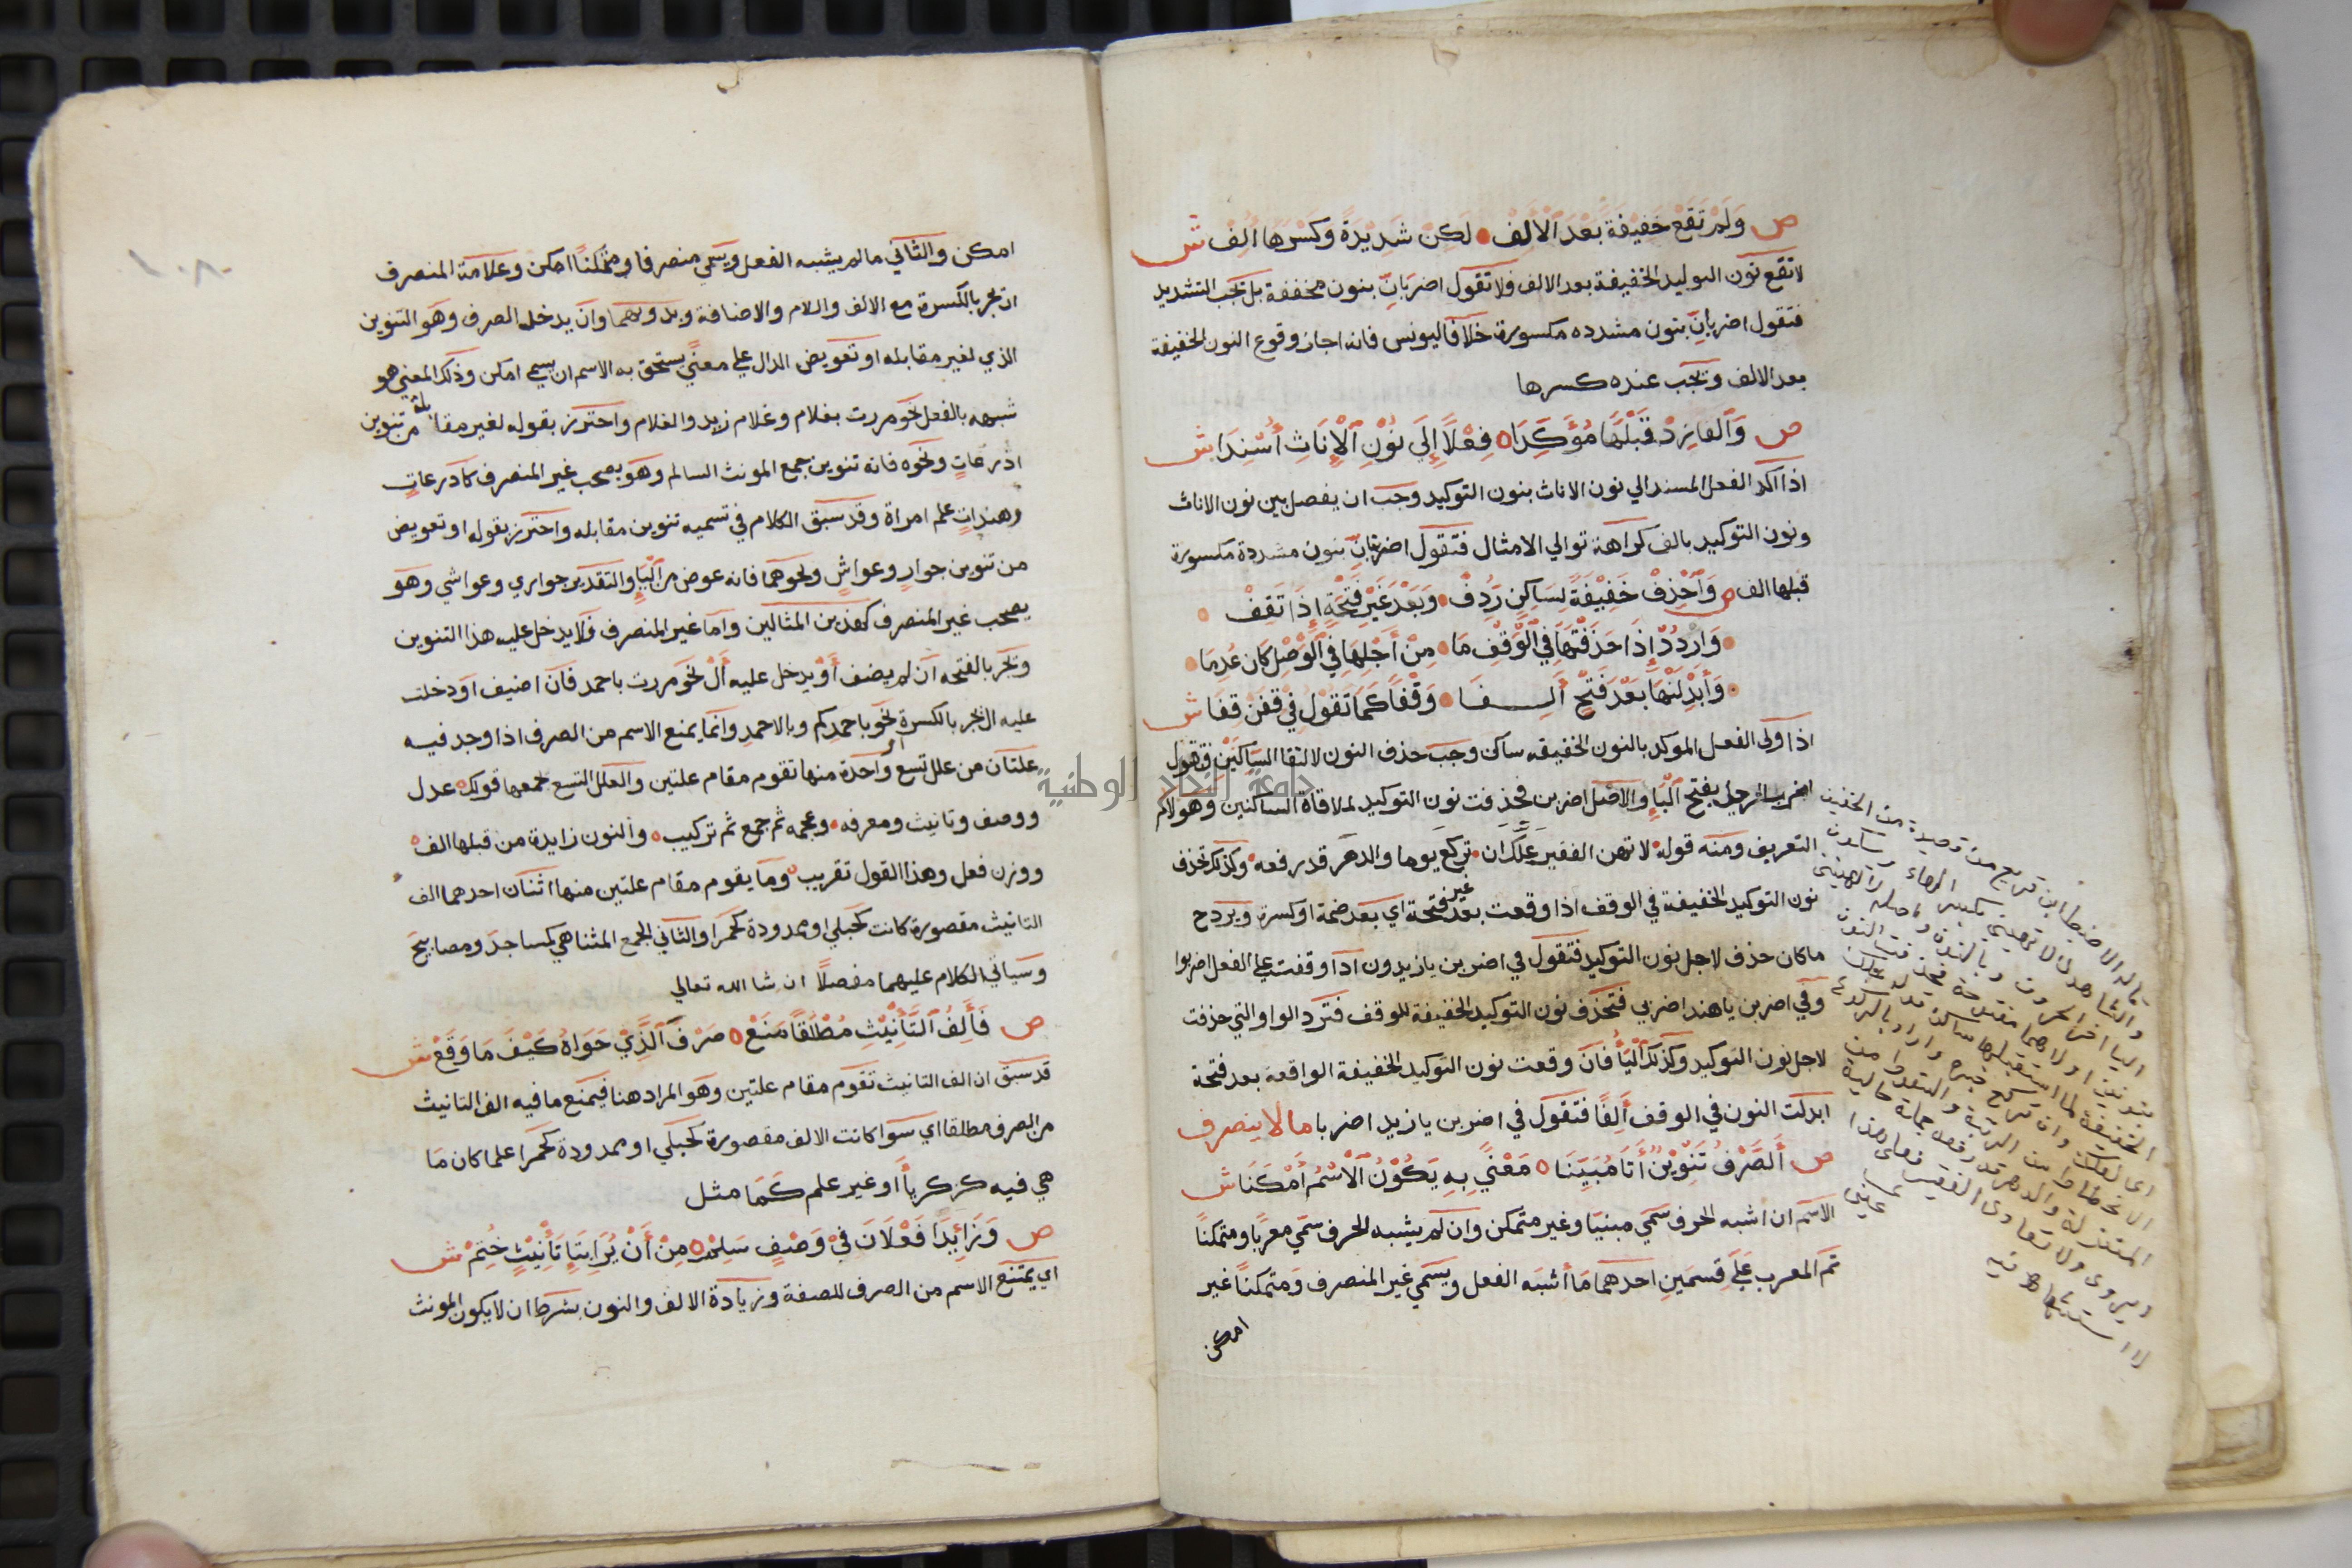 ص وَلَمْ تَقَعْ خَفِيْفَةً بَعْدَ الْأَلِفْ لَكِنْ شَدِيْدَةً وَكَسْرَهَا أُلِفْ ش
لا تقع نون التوكيد الخفيفة بعد الالف فلا تقول اضربَانِ بنون مخففة بل تجب التشديد
فتقول اضربانِّ بنون مشدده مكسورة خلافا ليونس فانه اجاز وقوع النون الخفيفة
بعد الالف ويجب عنده كسرها
ص وَأَلِفًا زِدْ قَبْلَهَا مُؤَكِّدَا فِعْلًا إِلَى نُوْنِ الْإِنَاثِ أُسْنِدَا ش
اذا اكد الفعل المسند الي نون الاناث بنون التوكيد وجب ان يفصل بين نون الاناث
ونون التوكيد بالف كراهة توالي الامثال فتقول اضربنانِّ بنون مشددة مكسورة
قبلها الف ص وَاحْذِفْ خَفِيْفَةً لِسَاكِنٍ رَدِفْ وَبَعْدَ غَيْرِ فَتْحَةٍ إِذَا تَقِفْ
وَارْدُدْ إِذَا حَذَفْتَهَا فِي الْوَقْفِ مَا مِنْ أَجْلِهَا فِي الْوَصْلِ كَانَ عُدِمَا
وَأَبْدِلَنْهَا بَعْدَ فَتْحٍ أَلِفَا وَقْفًا كَمَا تَقُوْلُ فِيْ قِفَنْ قِفَا ش
اذا ولى الفعل الموكد بالنون الخفيفه ساكن وجب حذف النون لالتقا السَّاكِنَيْنِ فتقول
اضرب الرجل بفتح الْبَاءِ والاصل اضربن فحذفت نون التوكيد لملاقاة الساكنين وهو لام
التعريف ومنه قوله لا تهن الفقير عَلَّكَ ان تركع يوما والدهر قد رفعه وكذلك تحذف
نون التوكيد الخفيفة في الوقف اذا وقعت بعد غير فتحة اي بعد ضمة او كسرة ويرد ح
ما كان حذف لاجل نون التوكيد فتقول في اضربن يا زيدون اذا وقفت علي الفعل اضربوا
وفي اضربن يا هند اضربي فتحذف نون التوكيد الخفيفة للوقف فترد الواو التي حذفت
لاجل نون التوكيد وكذلك الْيَاءُ فان وقعت نون التوكيد الخفيفة الواقعة بعد فتحة
ابدلت النون في الوقف أَلِفًا فتقول في اضربن يا زيد اضربا ما لا ينصرف
ص أَلصَّرْفُ تَنْوِيْنٌ أَتَا مُبَيِّنَا مَعْنًي بِهِ يَكُوْنُ الْاسْمُ أَمْكَنَا ش
الاسم ان اشبه الحرف سمي مبنيا وغير متمكن وان لم يشبه الحرف سمي معربا ومتمكنا
ثم المعرب عَلَي قسمين احدهما ما أشبه الفعل ويسمي غير المنصرف ومتمكنا غير
امكن
امكن والثاني ما لم يشبه الفعل ويسمي منصرفا ومتمكنا امكن وعلامة المنصرف
ان يجر بالكسرة مع الالف واللام والاضافة وبدونهما وان يدخله الصرف وهو التنوين
الذي لغير مقابله او تعويض الدال علي معني يستحق به الاسم ان يسمي امكن وذلك المعني هو
شبهه بالفعل نحو مررت بغلام وغلام زيد والغلام واحترز بقوله لغير مقابلة من تنوين
اذرعاتٍ ونحوه فانه تنوين جمع المونث السالم وهو يصحب غير المنصرف كاذرعاتٍ
وهنداتٍ علم امراة وقد سبق الكلام في تسميه تنوين مقابله واحترز بقوله او تعويض
من تنوين جوارٍ وعواشٍ ونحوهما فانه عوض من الْيَاءِ والتقدير جواري وعواشي وهو
يصحب غير المنصرف كهذين المثالين واما غير المنصرف فلا يدخل عليه هذا التنوين
ويجر بالفتحه ان لم يضف أَوْ يدخل عليه أَلْ نحو مررت باحمد فان اضيف او دخلت
عليه ال جر بالكسرة نحو باحمدِكم وبالاحمدِ وانما يمنع الاسم من الصرف اذا وجد فيه
علتان من علل تسع او واحدة منها تقوم مقام علتين والعلل التسع يجمعها قولك عدل
ووصف وتانيث ومعرفه وعجمه ثم جمع ثم تركيب والنون زايدة من قبلها الف
ووزن فعل وهذا القول تقريب وما يقوم مقام علتين منها اثنان احدهما الف
التانيث مقصورة كانت كحبلي او ممدودة كحمرا والثاني الجمع المتناهي كمساجد ومصابيح
وسياتي الكلام عليهما مفصلا ان شا الله تعالي
ص فَأَلِفُ التَّأْنِيْثِ مُطْلَقًا مَنَعْ صَرْفَ الَّذِيْ حَوَاهُ كَيْفَ مَا وَقَعْ ش
قد سبق ان الف التانيث تقوم مقام علتين وهو المراد هنا فيمنع ما فيه الف التانيث
من الصرف مطلقا اي سوا كانت الالف مقصورة كحبلي او ممدودة كحمرا علما كان ما
هي فيه كزكريا أو غير علم كما مثل
ص وَزَائِدَا فَعْلَانَ فِيْ وَصْفٍ سَلِمْ مِنْ أَنْ يُرَا بِتَاءِ تَأْنِيْثٍ خُتِمْ ش
اي يمتنع الاسم من الصرف للصفة وزيادة الالف والنون بشرط ان لا يكون المونث
١٠٨
جامعة النجاح الوطنية